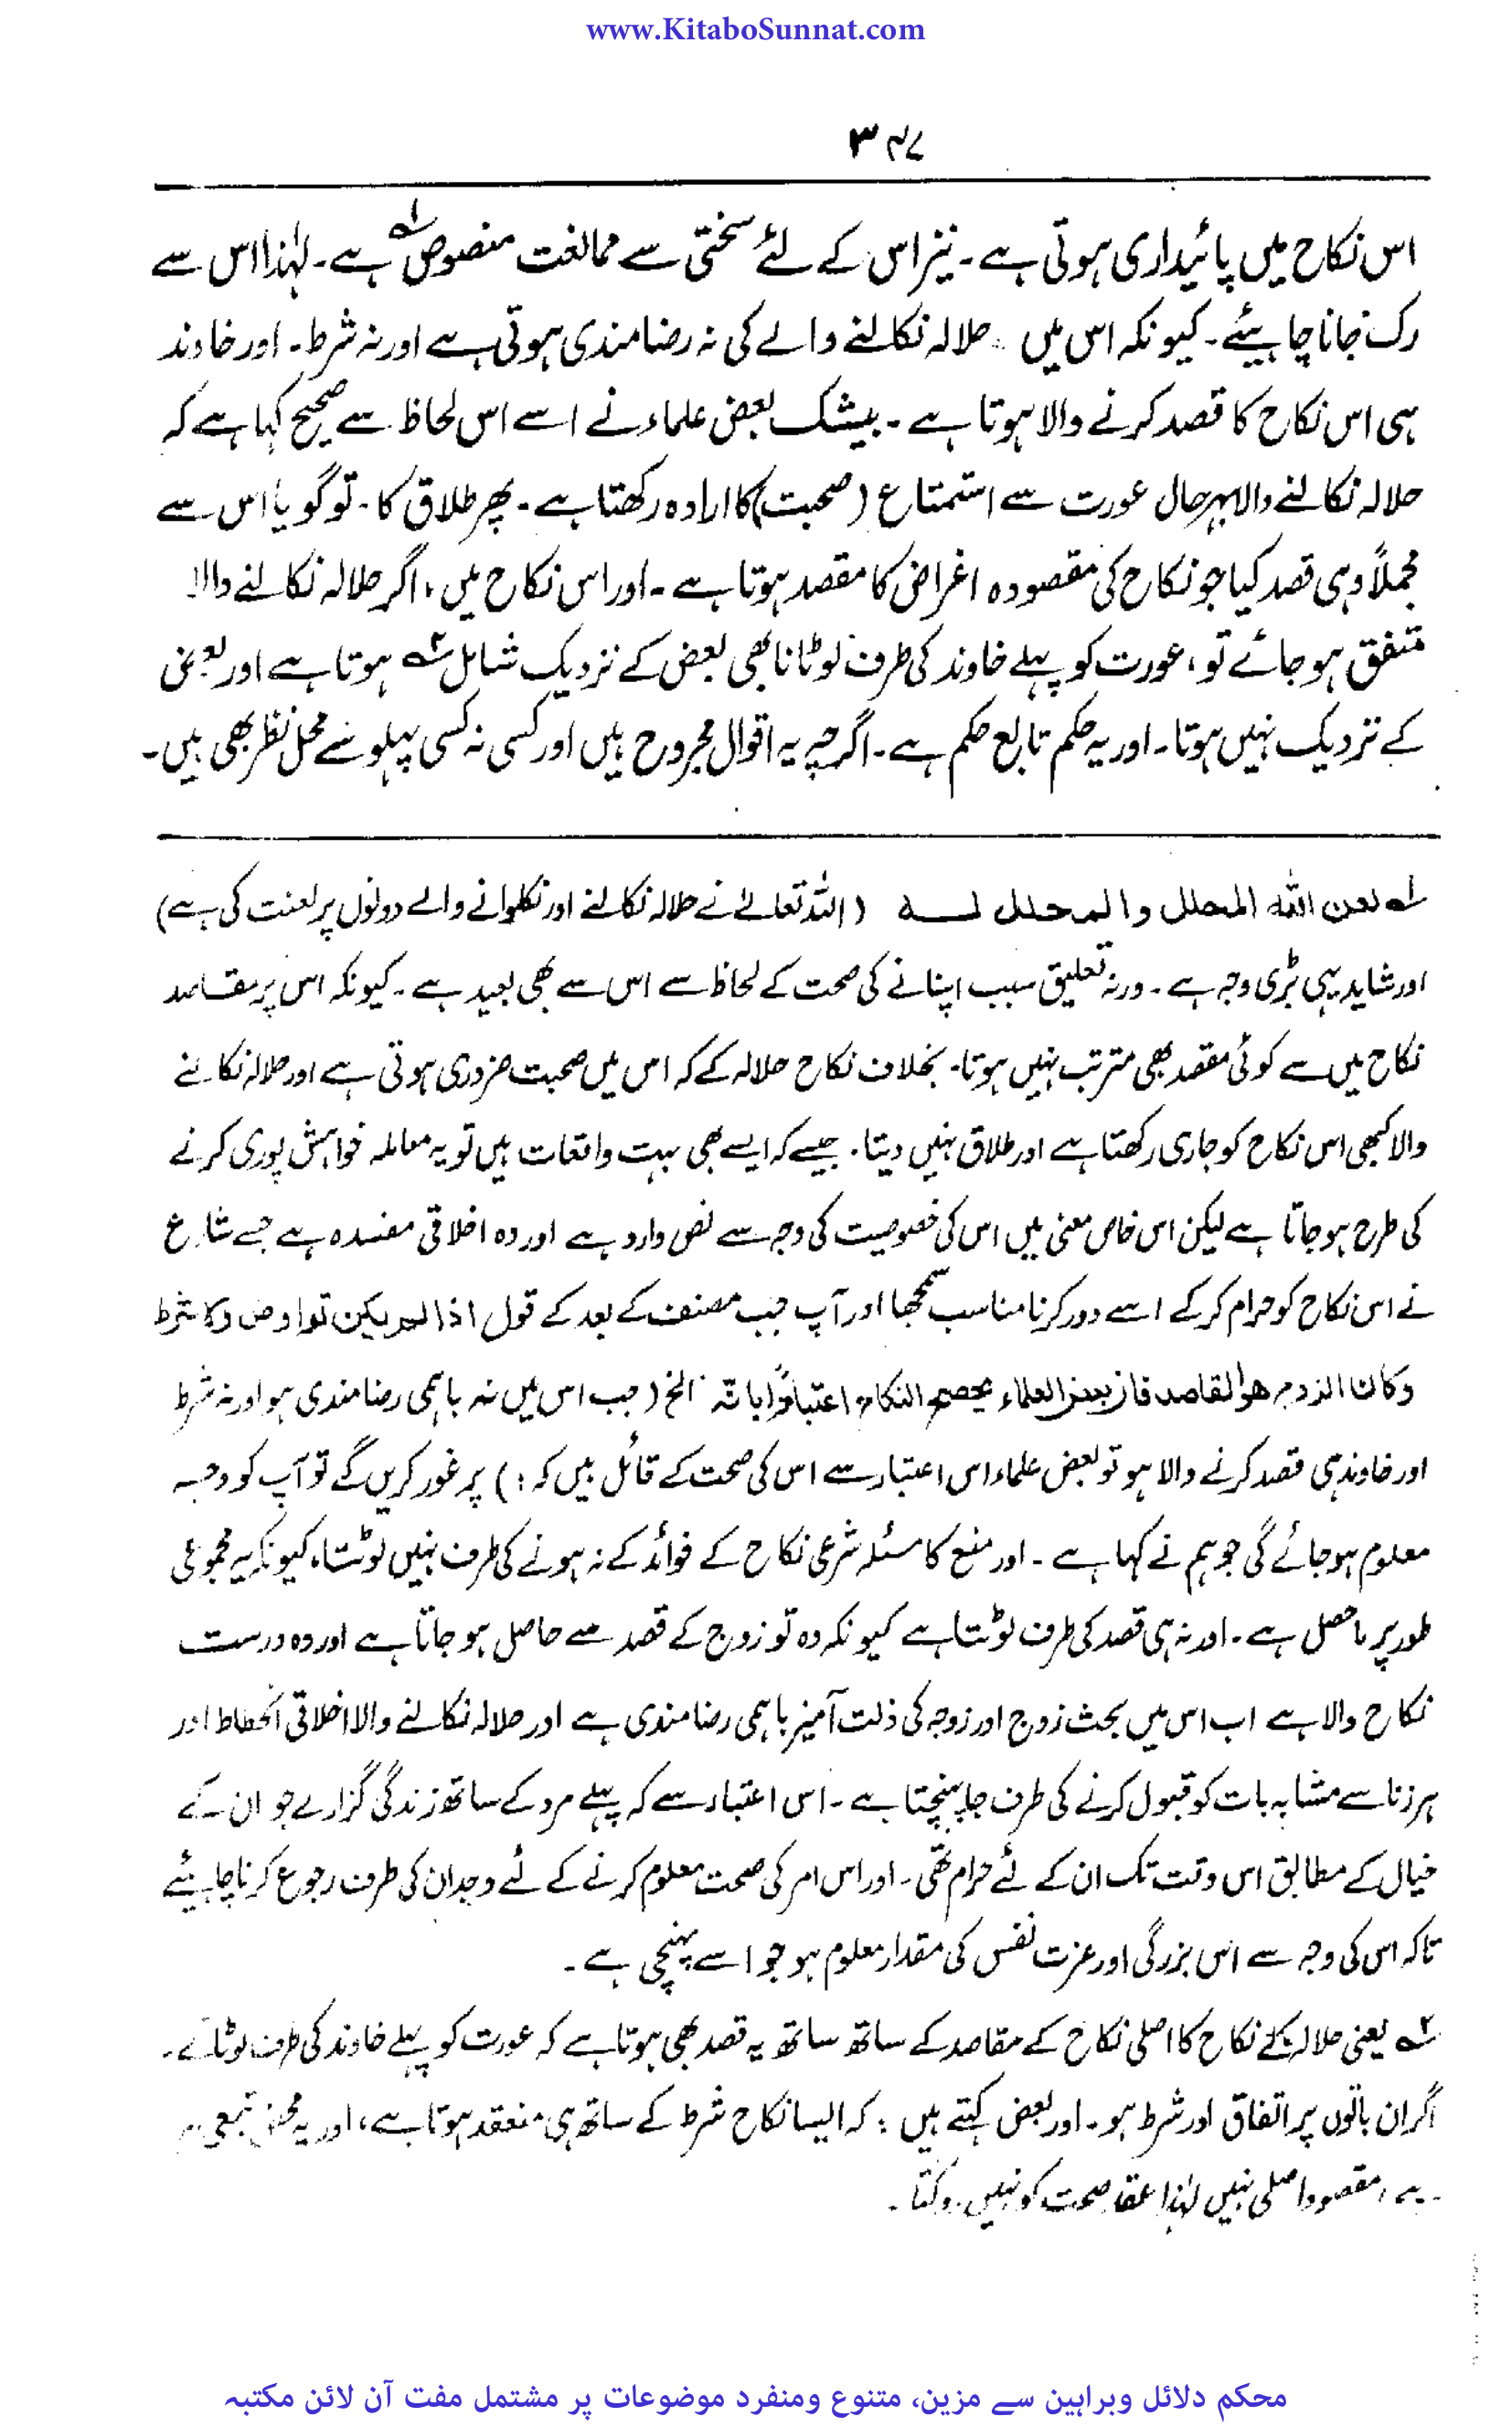 www.KitaboSunnat.com
۳۴۷
اس نکاح میں پائیداری ہوتی ہے۔ نیز اس کے لئے سختی سے ممالغت منصوص ۱؎ ہے۔ لہٰذا اس سے
رک جانا چاہیئے۔ کیونکہ اس میں حلالہ نکالنے والے کی نہ رضامندی ہوتی ہے اور نہ شرط۔ اور خاوند
ہی اس نکاح کا قصد کرنے والا ہوتا ہے۔ بیشک بعض علماء نے اسے اس لحاظ سے صحیح کہا ہے کہ
حلالہ نکالنے والا بہرحال عورت سے استمتاع (صحبت) کا ارادہ رکھتا ہے۔ پھر طلاق کا۔ تو گویا اس سے
مجملاً وہی قصد کیا جو نکاح کی مقصودہ اغراض کا مقصد ہوتا ہے۔ اور اس نکاح میں، اگر حلالہ نکالنے والا
متفق ہو جائے تو، عورت کو پہلے خاوند کی طرف لوٹانا بھی بعض کے نزدیک شامل ۲؎ ہوتا ہے اور بعض
کے نزدیک نہیں ہوتا۔ اور یہ حکم تابع حکم ہے۔ اگرچہ یہ اقوال مجروح ہیں اور کسی نہ کسی پہلو سے محل نظر بھی ہیں۔
۱؎ لعن اللہ المحلل والمحلل لہ (اللہ تعالےٰ نے حلالہ نکالنے اور نکلوانے والے دونوں پر لعنت کی ہے)
اور شاید یہی بڑی وجہ ہے۔ ورنہ تعلیق سبب اپنانے کی صحت کے لحاظ سے اس سے بھی بعید ہے۔ کیونکہ اس پر مقاصد
نکاح میں سے کوئی مقصد بھی مترتب نہیں ہوتا۔ بخلاف نکاح حلالہ کے کہ اس میں صحبت ضروری ہوتی ہے اور حلالہ نکالنے
والا کبھی اس نکاح کو جاری رکھتا ہے اور طلاق نہیں دیتا۔ جیسے کہ ایسے بھی بہت واقعات ہیں تو یہ معاملہ خواہش پوری کرنے
کی طرح ہو جاتا ہے لیکن اس خاص معنی میں اس کی خصوصیت کی وجہ سے نص وارد ہے اور وہ اخلاقی مفسدہ ہے جسے شارع
نے اس نکاح کو حرام کر کے اسے دور کرنا مناسب سمجھا اور آپ جب مصنف کے بعد کے قول اذا لم یکن تواوض وکا شرط
وکان الزوج هو القاصد فان بعض العلماء یصحح النکاح اعتباراً بانہ الخ (جب اس میں نہ باہمی رضامندی ہو اور نہ شرط
اور خاوند ہی قصد کرنے والا ہو تو بعض علماء اس اعتبار سے اس کی صحت کے قائل ہیں کہ:) پر غور کریں گے تو آپ کو وجہ
معلوم ہو جائے گی جو ہم نے کہا ہے۔ اور منع کا مسئلہ شرعی نکاح کے فوائد کے نہ ہونے کی طرف نہیں لوٹتا، کیونکہ یہ مجموعی
طور پر حاصل ہے۔ اور نہ ہی قصد کی طرف لوٹتا ہے کیونکہ وہ تو زوج کے قصد سے حاصل ہو جاتا ہے اور وہ درست
نکاح والا ہے اب اس میں بحث زوج اور زوجہ کی ذلت آمیز باہمی رضامندی ہے اور حلالہ نکالنے والا اخلاقی انحطاط اور
ہر زنا سے مشابہ بات کو قبول کرنے کی طرف جا پہنچتا ہے۔ اس اعتبار سے کہ پہلے مرد کے ساتھ زندگی گزارے جو ان کے
خیال کے مطابق اس وقت تک ان کے لئے حرام تھی۔ اور اس امر کی صحت معلوم کرنے کے لئے وجدان کی طرف رجوع کرنا چاہیئے
تاکہ اس کی وجہ سے اس بزرگی اور عزت نفس کی مقدار معلوم ہو جو اسے پہنچی ہے۔
۲؎ یعنی حلالہ کے نکاح کا اصلی نکاح کے مقاصد کے ساتھ ساتھ یہ قصد بھی ہوتا ہے کہ عورت کو پہلے خاوند کی طرف لوٹائے۔
اگر ان باتوں پر اتفاق اور شرط ہو۔ اور بعض کہتے ہیں: کہ ایسا نکاح شرط کے ساتھ ہی منعقد ہوتا ہے، اور یہ محض
ہے، مقصود اصلی نہیں لہٰذا عقد صحت کو نہیں روکتا۔
محکم دلائل وبراہین سے مزین، متنوع ومنفرد موضوعات پر مشتمل مفت آن لائن مکتبہ